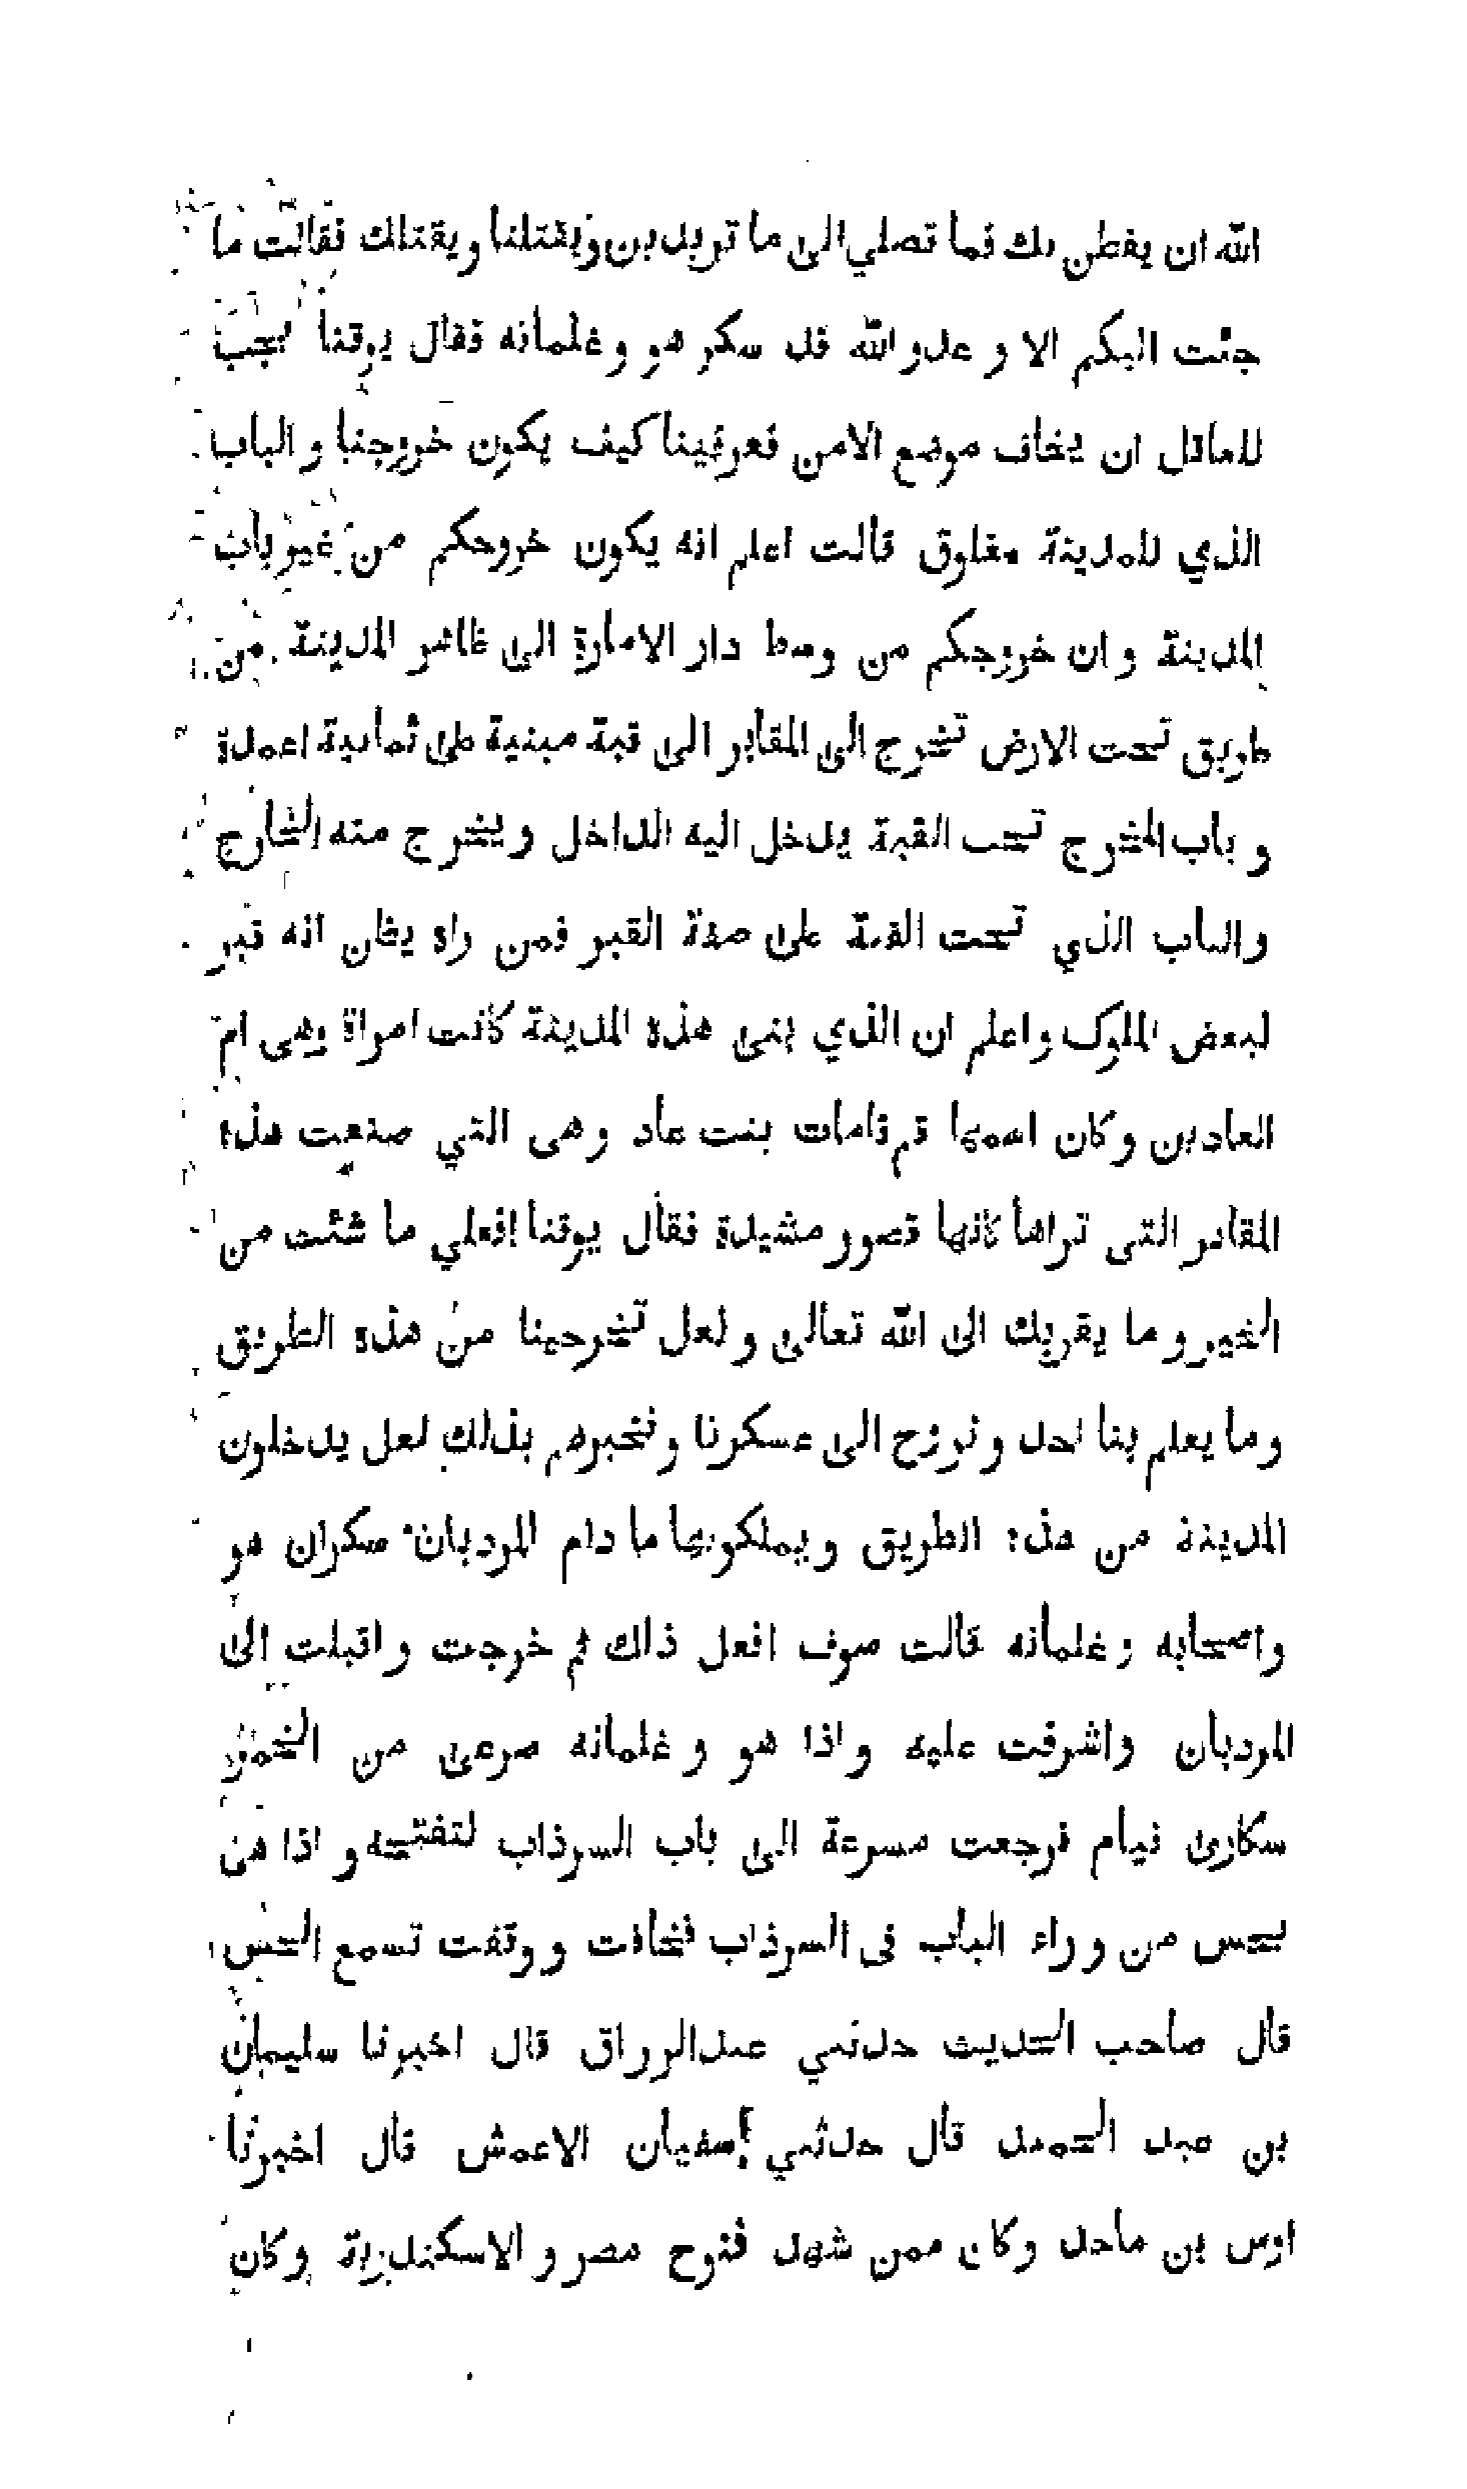 الله ان يفطن بك فما تصلي الى ما تريدين ويقتلنا ويقتلك فقالت ما
جئت اليكم الا و عدو الله قد سكر هو وغلمانه فقال يوقنا يجب
للعاقل ان يخاف موضع الامن فعرفينا كيف يكون خروجنا و الباب
الذي للمدينة مغلوق قالت اعلم انه يكون خروجكم من غير باب
المدينة و ان خروجكم من وسط دار الامارة الى ظاهر المدينة من
طريق تحت الارض تخرج الى المقابر الى قبة مبنية على ثمانية اعمدة
و باب المخرج تحت القبة يدخل اليه الداخل ويخرج منه الخارج
والباب الذي تحت القبة على صفة القبر فمن راه يظن انه قبر
لبعض الملوك واعلم ان الذي بنى هذه المدينة كانت امراة وهى ام
العادين وكان اسمها قم قامات بنت عاد وهى التي صنعت هذه
المقابر التى تراها كانها قصور مشيدة فقال يوقنا افعلي ما شئت من
الخير و ما يقربك الى الله تعالى و لعل تخرجينا من هذه الطريق
وما يعلم بنا احد و نروح الى عسكرنا و نخبرهم بذلك لعل يدخلون
المدينة من هذه الطريق و يملكونها ما دام المردبان سكران هو
واصحابه وغلمانه قالت سوف افعل ذلك ثم خرجت و اقبلت الى
المردبان واشرفت عليه و اذا هو و غلمانه صرعى من الخمور
سكارى نيام فرجعت مسرعة الى باب السرداب لتفتحه و اذا هى
بحس من و راء الباب فى السرذاب فخافت و وقفت تسمع الحس
قال صاحب الحديث حدثنى عبدالرزاق قال اخبرنا سليمان
بن عبد الحميد قال حدثني سفيان الاعمش قال اخبرنا
اوس بن ماجد وكان ممن شهد فتوح مصر و الاسكندرية وكان